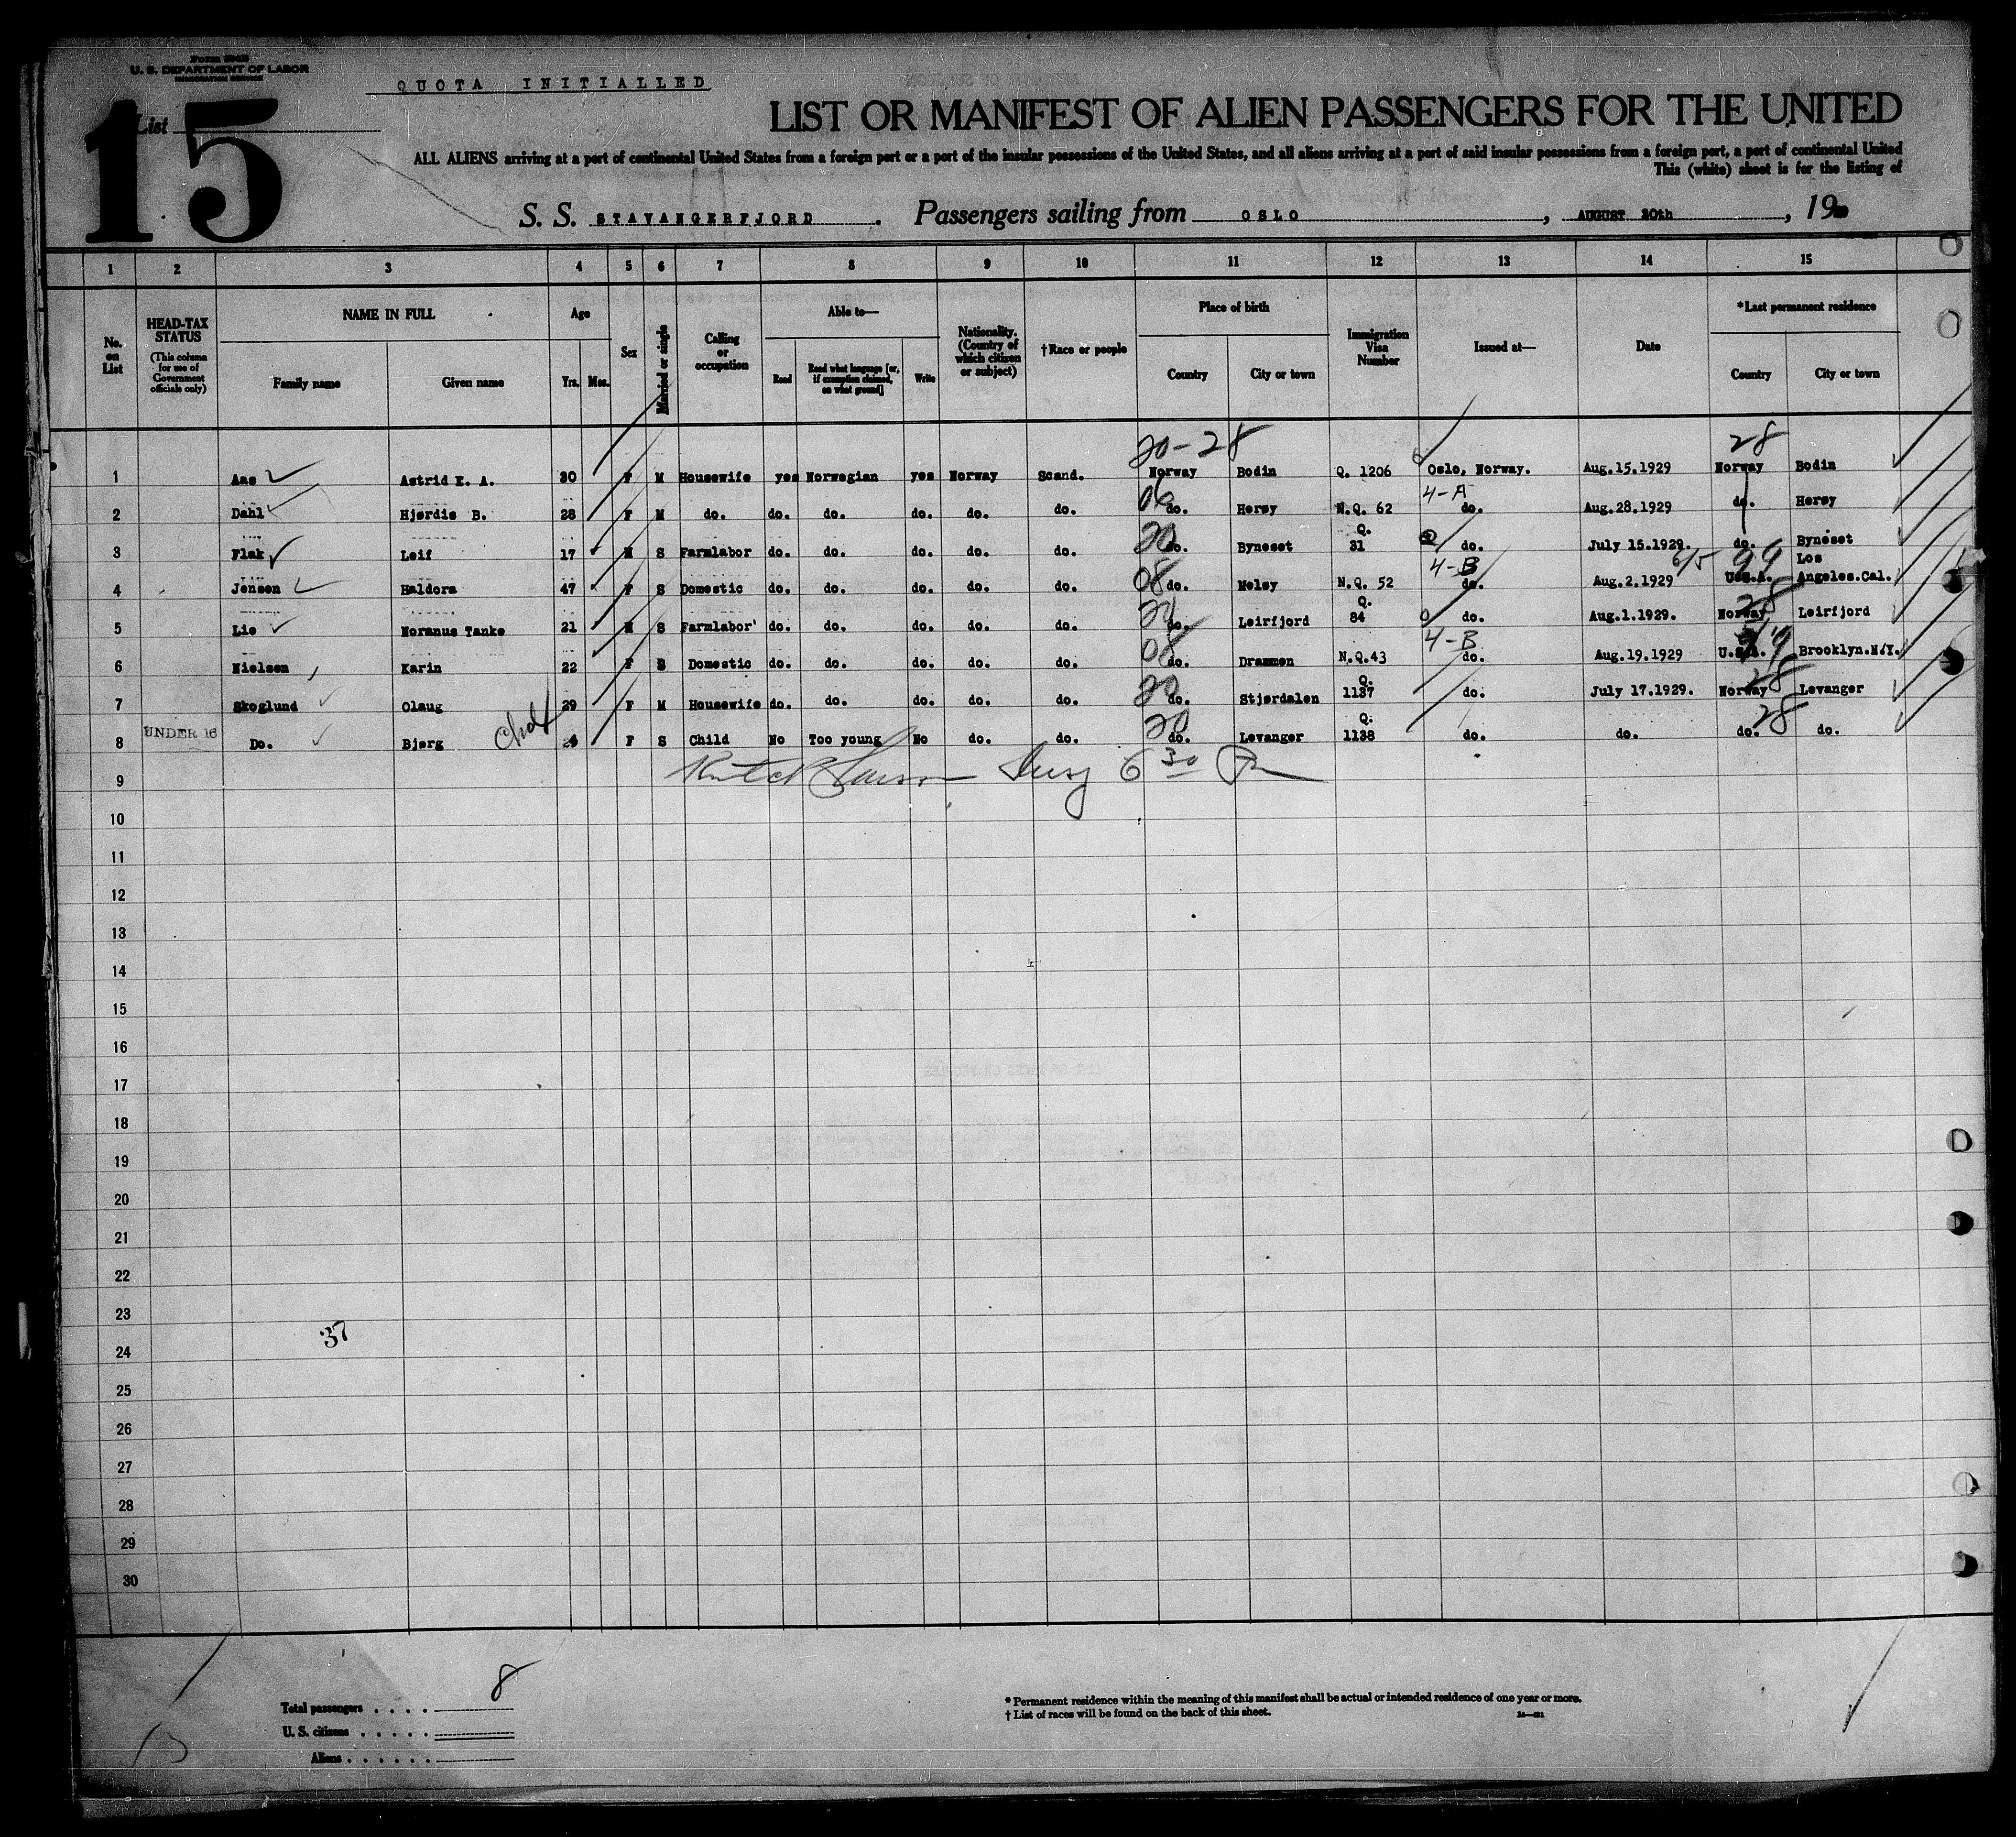 Form 500B
U. S. DEPARTMENT OF LABOR
IMMIGRATION SERVICE
QUOTA INITIALLED
List
15
LIST OR MANIFEST OF ALIEN PASSENGERS FOR THE UNITED
ALL ALIENS arriving at a port of continental United States from a foreign port or a port of the insular possessions of the United States, and all aliens arriving at a port of said insular possessions from a foreign port, a port of continental United
This (white) sheet is for the listing of
S. S. STAVANGERFJORD. Passengers sailing from OSLO, AUGUST 20th, 19
1 2 3 4 5 6 7 8 9 10 11 12 13 14 15
No. on List
HEAD-TAX STATUS (This column for use of Government officials only)
NAME IN FULL Family name Given name
Age Yrs. Mos.
Sex
Married or single
Calling or occupation
Able to— Read Read what language [or, if exemption claimed, on what ground] Write
Nationality. (Country of which citizen or subject)
†Race or people
Place of birth Country City or town
Immigration Visa Number
Issued at—
Date
*Last permanent residence Country City or town
20-28 28
1 Aas Astrid E. A. 30 F M Housewife yes Norwegian yes Norway Scand. Norway Bodin Q. 1206 Oslo, Norway. Aug.15.1929 Norway Bodin
06 4-A
2 Dahl Hjørdis B. 28 F M do. do. do. do. do. do. do. Herøy N.Q. 62 do. Aug.28.1929 do. Herøy
20
3 Flak Leif 17 M S Farmlabor do. do. do. do. do. do. Byneset Q. 31 do. July 15.1929. do. Byneset
08 4-B 99
4 Jensen Haldora 47 F S Domestic do. do. do. do. do. do. Meløy N.Q. 52 do. Aug.2.1929 U.S.A. Los Angeles.Cal.
20 28
5 Lie Noranus Tanke 21 M S Farmlabor do. do. do. do. do. do. Leirfjord Q. 84 do. Aug.1.1929. Norway Leirfjord
08 4-B 99
6 Nielsen Karin 22 F S Domestic do. do. do. do. do. do. Drammen N.Q.43 do. Aug.19.1929 U.S.A. Brooklyn.N.Y.
20 28
7 Skoglund Olaug 29 F M Housewife do. do. do. do. do. do. Stjørdalen Q. 1137 do. July 17.1929. Norway Levanger
20 28
8 UNDER 16 Do. Bjørg F S Child No Too young No do. do. do. Levanger Q. 1138 do. do. do. do.
9 6 30
10
11
12
13
14
15
16
17
18
19
20
21
22
23
37
24
25
26
27
28
29
30
Total passengers . . . . 8
U. S. citizens . . . . .
Aliens . . . . . .
* Permanent residence within the meaning of this manifest shall be actual or intended residence of one year or more.
† List of races will be found on the back of this sheet.